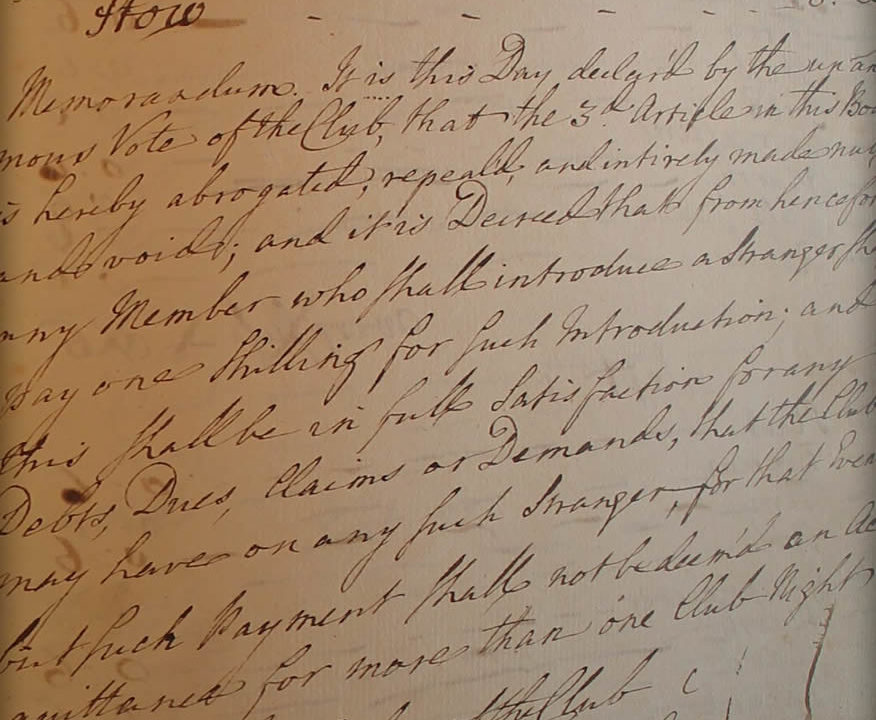 Stow - - - - -
Memorandum. It is this Day declar'd by the unan
mous Vote of the Club, that the 3d. Article in this Boo
is hereby abrogated, repeal'd, and intirely made nul
and void; and it is Decreed that from hencefor
any Member who shall introduce a Stranger sha
pay one Shilling for such Introduction; and
this shall be in full Satisfaction for any
Debts, Dues, Claims or Demands, that the Club
may have on any such Stranger, for that Even
but such Payment shall not be deem'd an Ac
quittance for more than one Club Night
of the Club